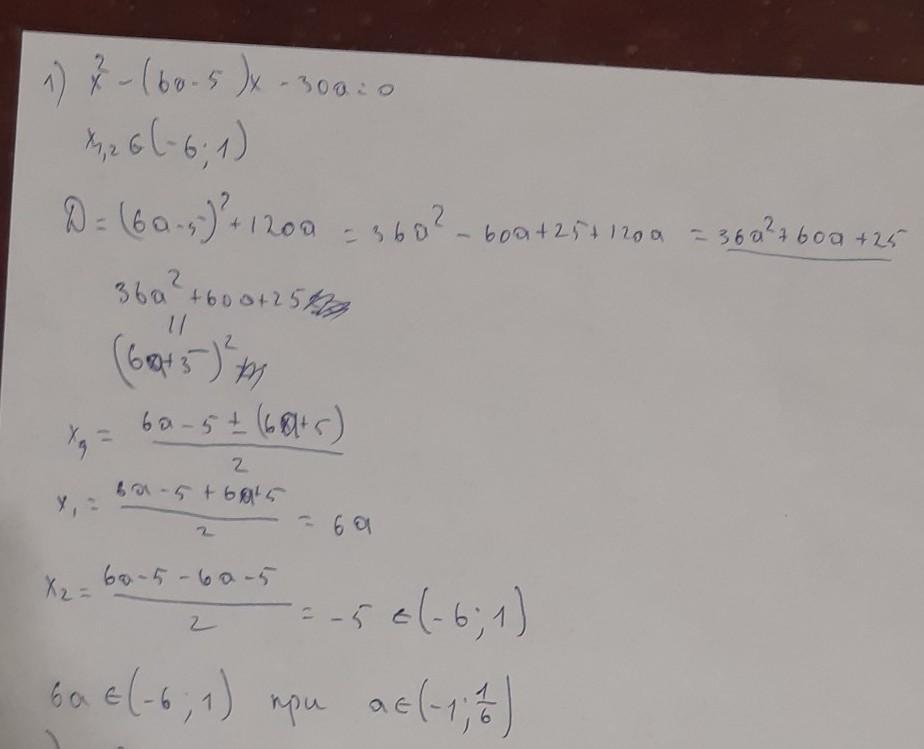 1) x² - (6a - 5)x - 30a = 0
x₁,₂ ∈ (-6; 1)
D = (6a - 5)² + 120a = 36a² - 60a + 25 + 120a = 36a² + 60a + 25
36a² + 60a + 25
||
(6a + 5)²
x = (6a - 5 ± (6a + 5)) / 2
x₁ = (6a - 5 + 6a + 5) / 2 = 6a
x₂ = (6a - 5 - 6a - 5) / 2 = -5 ∈ (-6; 1)
6a ∈ (-6; 1) при a ∈ (-1; 1/6)